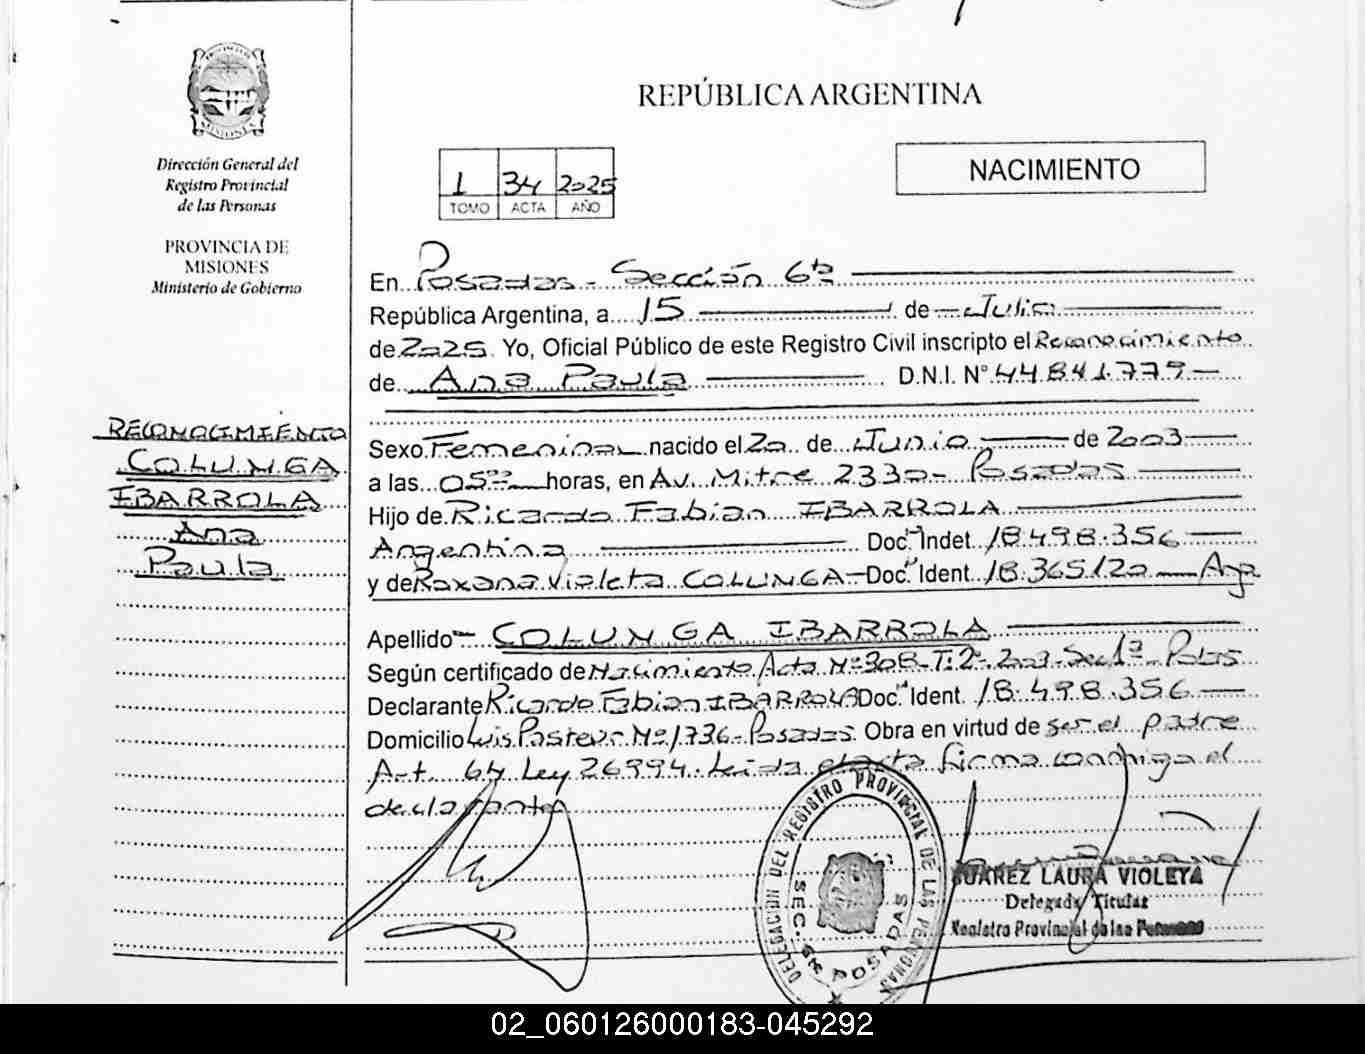 Dirección General del
Registro Provincial
de las Personas
PROVINCIA DE
MISIONES
Ministerio de Gobierno
RECONOCIMIENTO
COLUNGA
IBARROLA
Ana
Paula
REPÚBLICA ARGENTINA
1 34 2025
TOMO ACTA AÑO
NACIMIENTO
En Posadas - Sección 6ta
República Argentina, a 15 de Julio
de 2025. Yo, Oficial Público de este Registro Civil inscripto el Reconocimiento
de Ana Paula D.N.I. N° 44.841.779
Sexo Femenina nacido el 20 de Junio de 2003
a las 05 horas, en Av. Mitre 2330 - Posadas
Hijo de Ricardo Fabian IBARROLA
Argentina Doc. Indet. 18.498.356
y de Roxana Violeta COLUNGA - Doc. Ident. 18.365120 Arg
Apellido COLUNGA IBARROLA
Según certificado de Nacimiento Acta N° 308 - T: 2° 2003 - Sec 1ª - Pdas
Declarante Ricardo Fabian IBARROLA Doc. Ident. 18.498.356
Domicilio Luis Pasteur N° 1736 - Posadas. Obra en virtud de ser el padre
Art. 64 Ley 26994. Leida el acta firma conmigo el
declarante
DELEGACION DEL REGISTRO PROVINCIAL DE LAS PERSONAS
SEC. POSADAS
SUAREZ LAURA VIOLETA
Delegada Titular
Registro Provincial de las Personas
02_060126000183-045292